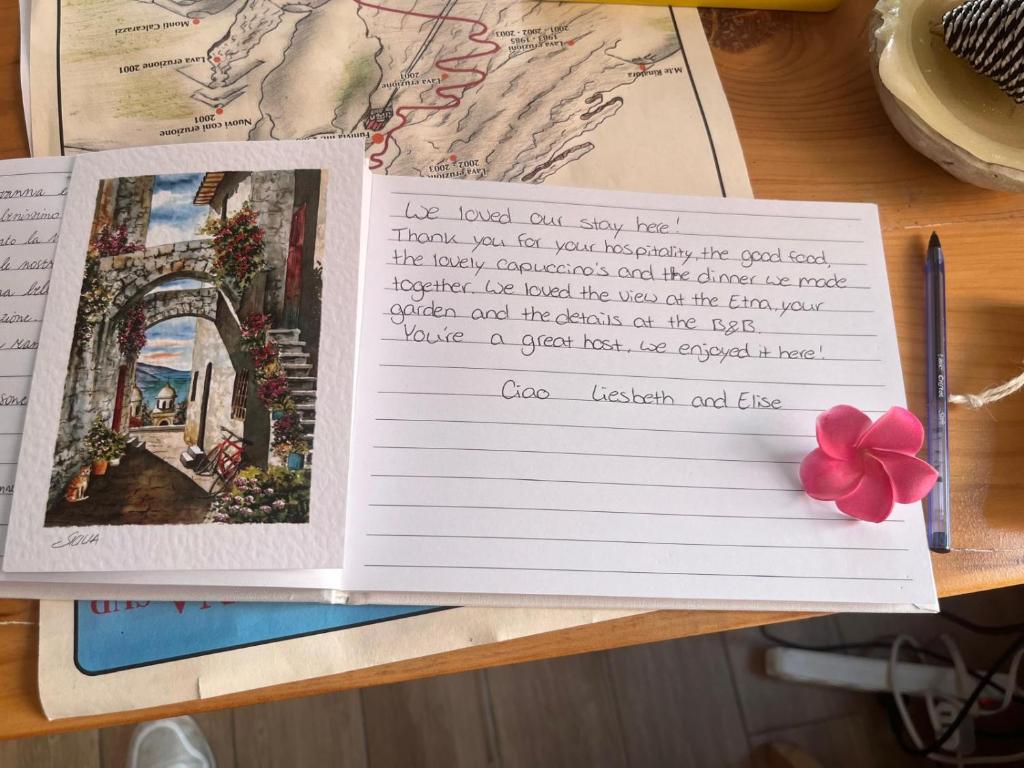 Monti Calcarazzi
Lava eruzione 2001
Nuovi coni eruzione
2001
Lava eruzione
2001
Lava eruzioni
1983 - 1985
2001 - 2002 - 2003
M.te Rinatura
Lava eruzioni
2002 - 2003
benissimo
We loved our stay here!
Thank you for your hospitality, the good food,
the lovely capuccino's and the dinner we made
together. We loved the view at the Etna, your
garden and the details at the B&B.
You're a great host, we enjoyed it here!
Ciao Liesbeth and Elise
SUD